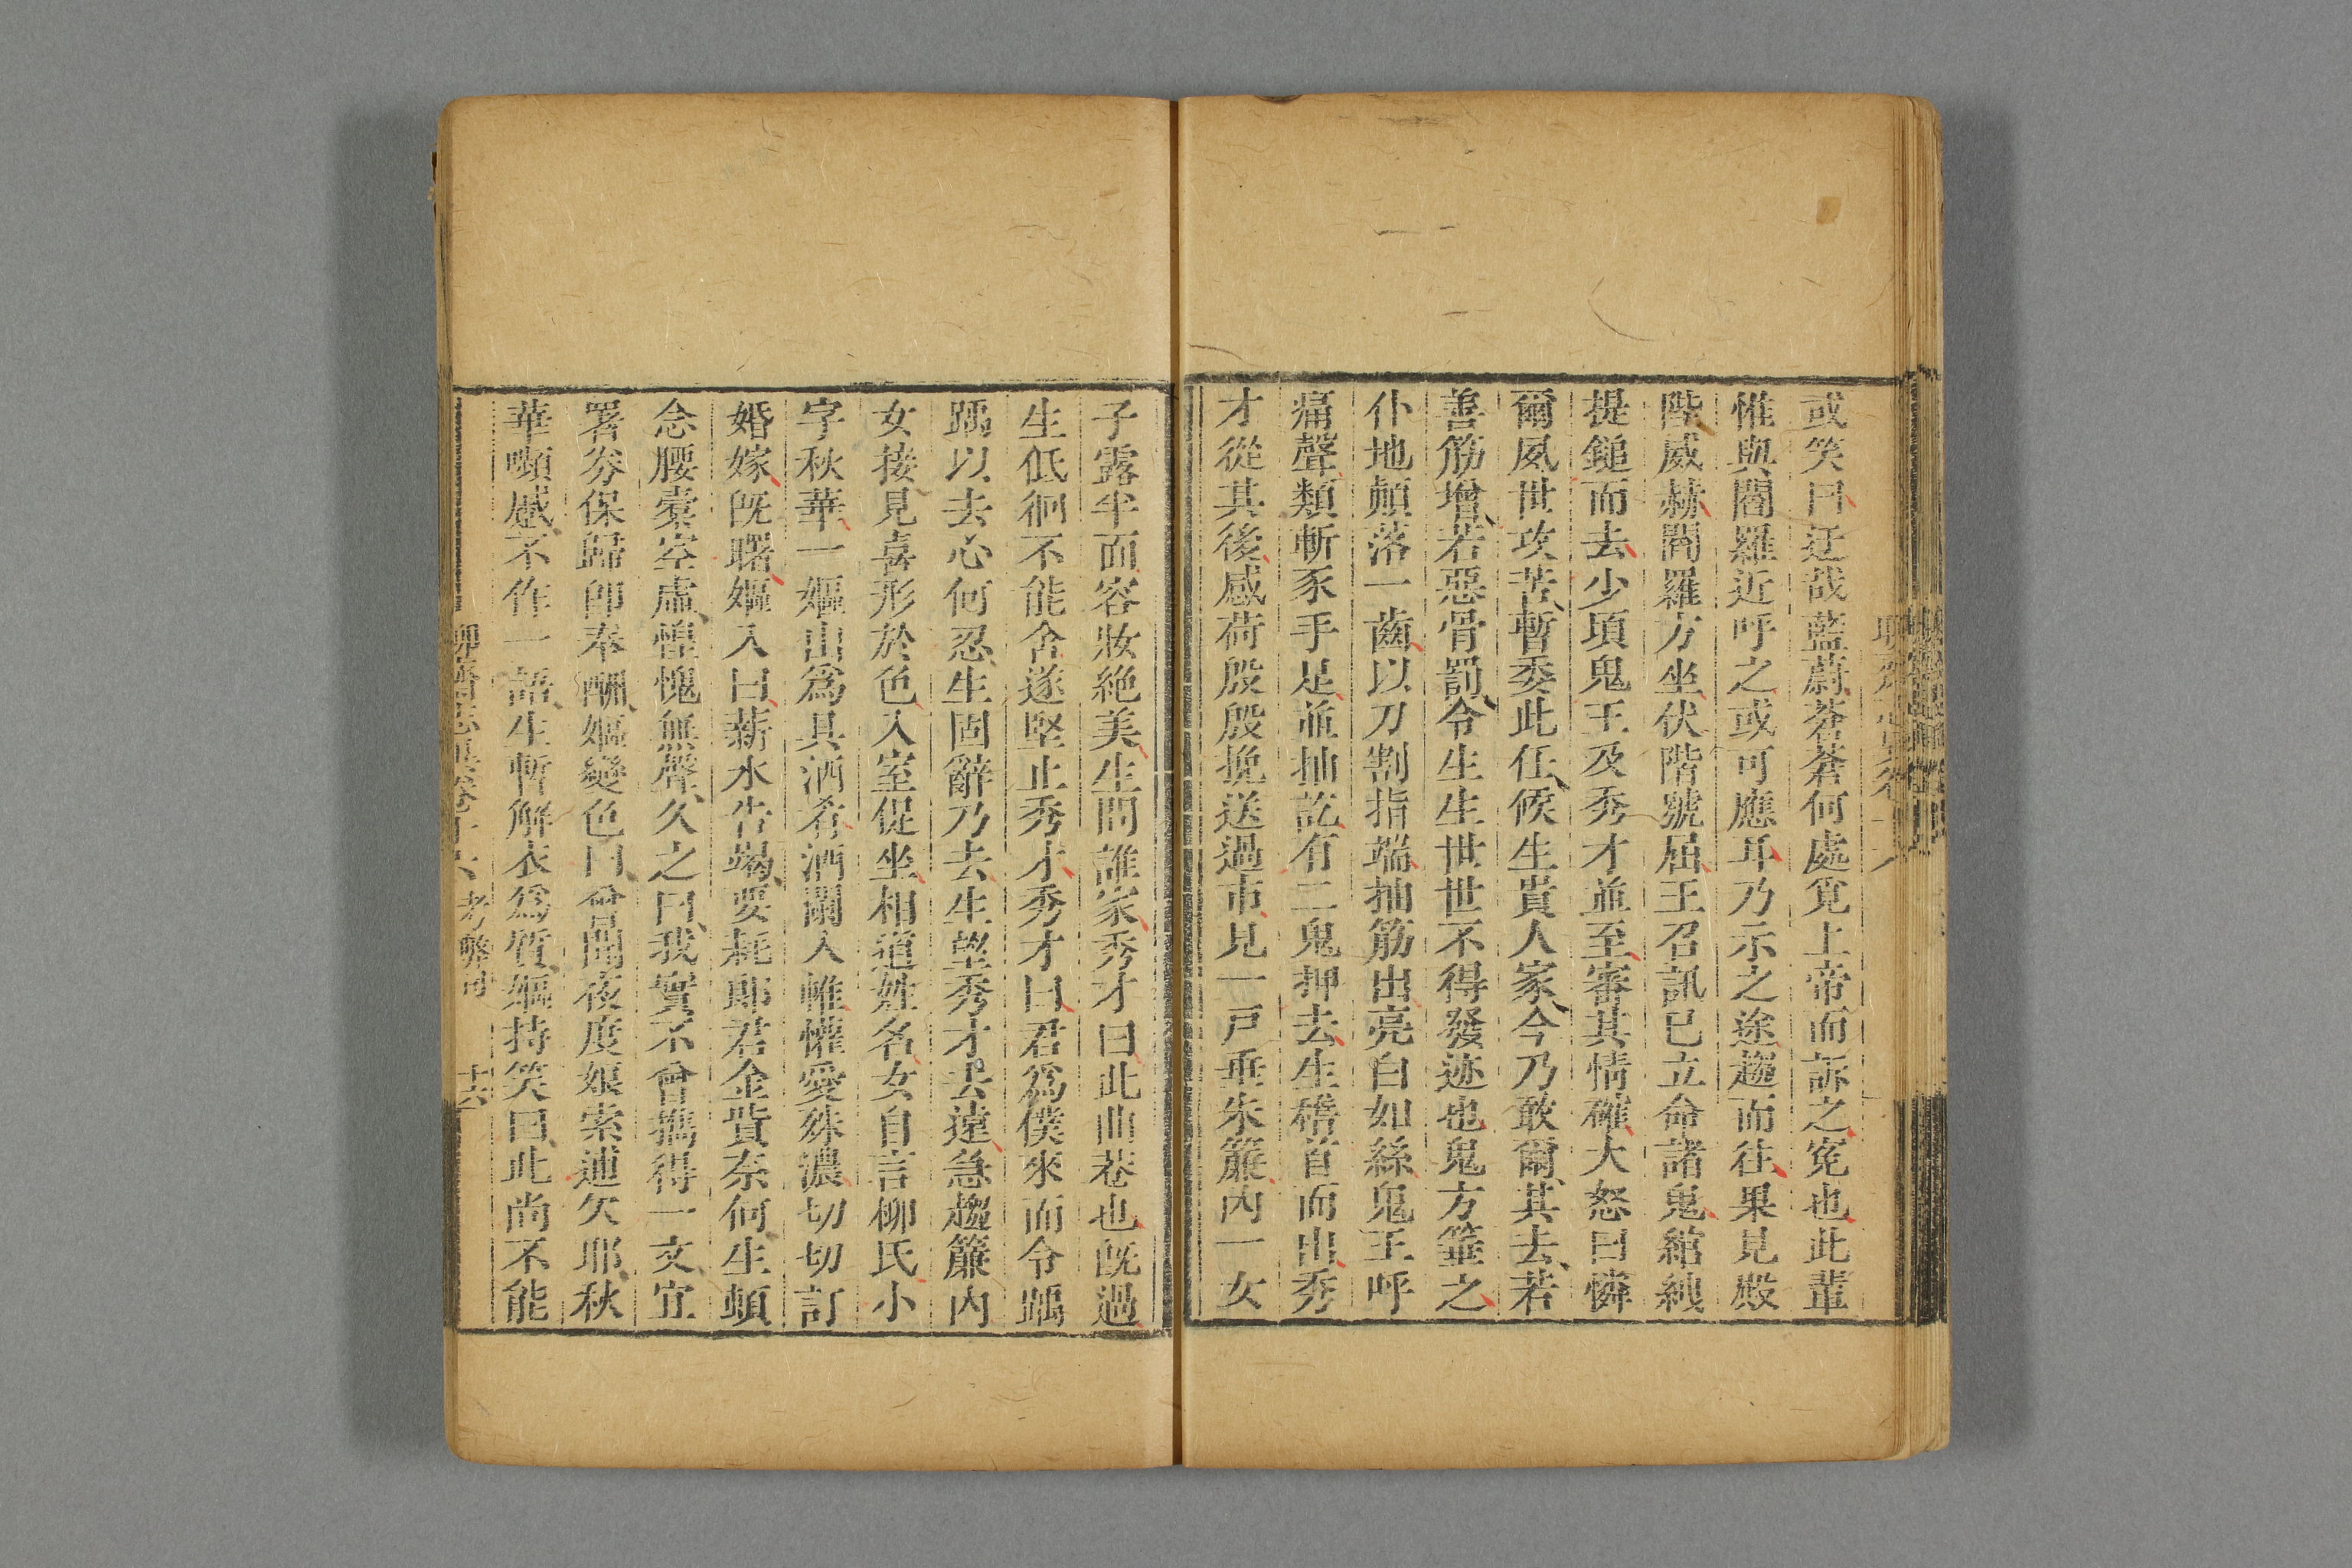 或笑曰迂哉藍蔚蒼蒼何處覓上帝而訴之冤也此輩
惟與閻羅近呼之或可應耳乃示之途趨而往果見殿
陛威赫閻羅方坐伏階號屈王召訊已立命諸鬼綰絏
提鎚而去少頃鬼王及秀才並至審其情確大怒曰憐
爾夙世攻苦暫委此任候生貴人家今乃敢爾其去若
善筋增若惡骨罰令生生世世不得發迹也鬼方箠之
仆地顛落一齒以刀割指端抽筋出亮白如絲鬼王呼
痛聲類斬豕手足並抽訖有二鬼押去生稽首而出秀
才從其後感荷殷殷挽送過市見一戶垂朱簾內一女
子露半面容妝絶美生問誰家秀才曰此曲巷也既過
生低徊不能舍遂堅止秀才秀才曰君爲僕來而令踽
踽以去心何忍生固辭乃去生望秀才去遠急趨簾內
女接見喜形於色入室促坐相道姓名女自言柳氏小
字秋華一嫗出爲具酒肴酒闌入帷懽愛殊濃切切訂
婚嫁既曙嫗入曰薪水告竭要耗郎君金貲奈何生頓
念腰橐空虛惶愧無聲久之曰我實不曾攜得一文宜
署券保歸即奉酬嫗變色曰曾聞夜度娘索逋欠耶秋
華嚬蹙不作一語生暫解衣爲質嫗持笑曰此尚不能
考弊司 十六